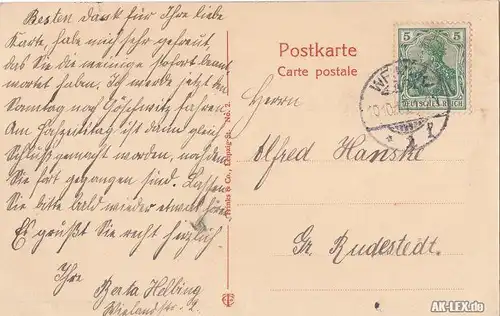 Besten Dank für Ihre liebe
Karte, habe mich sehr gefreut,
daß Sie die meinige sofort beant
wortet haben. Ich werde jetzt den
Sonntag nach Göschwitz fahren.
Am                 ist dann gleich
Schluß gemacht worden, nachdem
Sie fort gegangen sind. Lassen
Sie bitte bald wieder etwas hören
Es grüßt Sie recht herzlich
Ihre
Berta Helbing
Wielandstr. 2.
& Co., Leipzig-St. No. 2.
Postkarte
Carte postale
5
5
DEUTSCHES REICH
Herrn
Alfred Hanske
Gr. Rudestedt.
AK-LEX.de